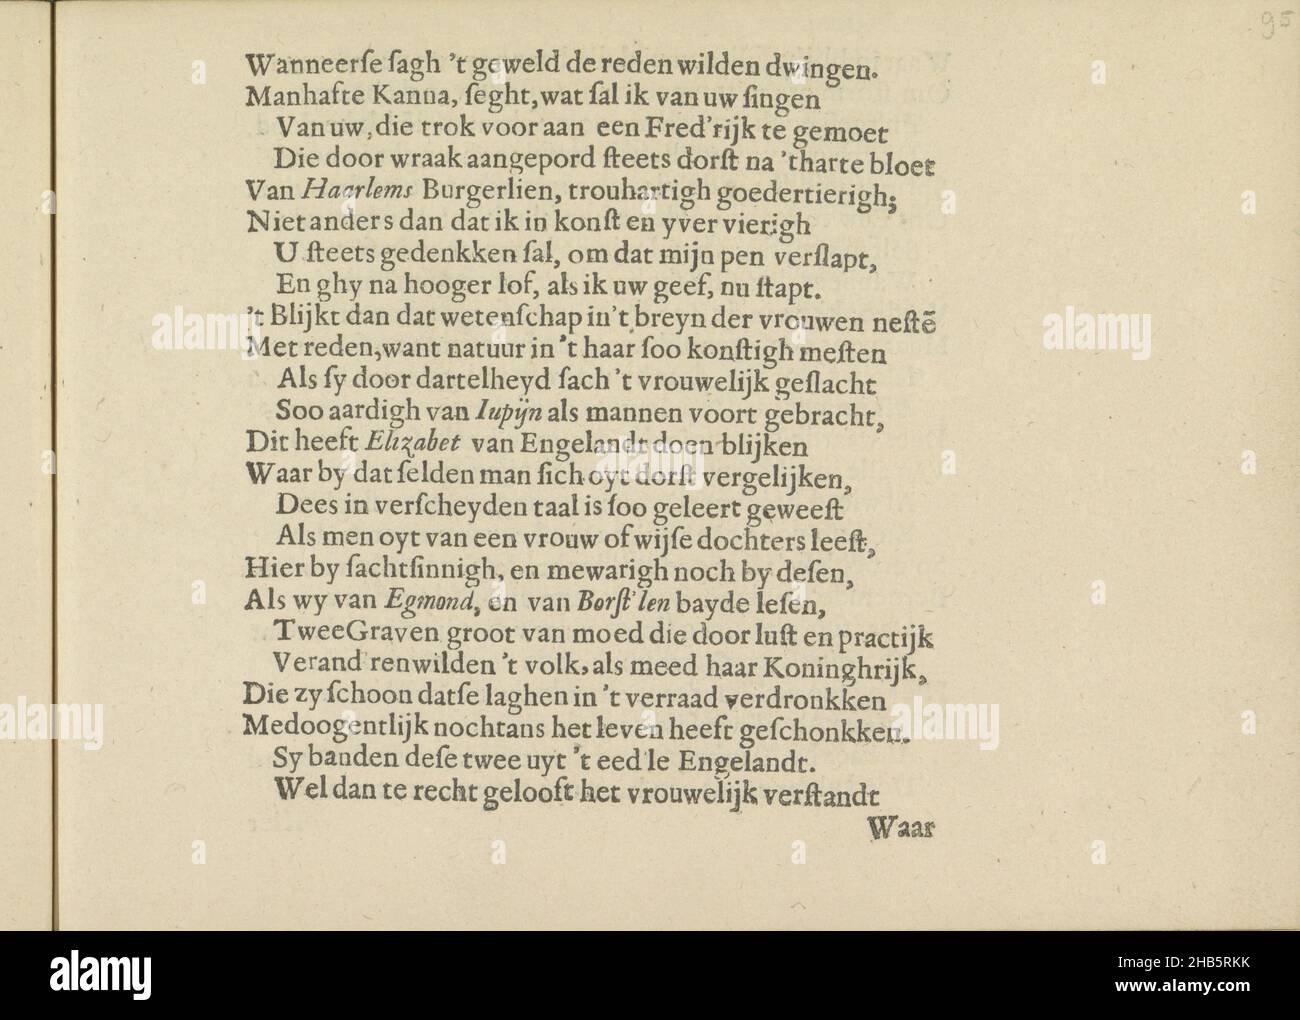 95
Wanneerſe ſagh 't geweld de reden wilden dwingen.
Manhafte Kanua, ſeght, wat ſal ik van uw ſingen
Van uw, die trok voor aan een Fred'rijk te gemoet
Die door wraak aangepord ſteets dorſt na 'tharte bloet
Van Haarlems Burgerlien, trouhartigh goedertierigh;
Niet anders dan dat ik in konſt en yver vierigh
U ſteets gedenkken ſal, om dat mijn pen verſlapt,
En ghy na hooger lof, als ik uw geef, nu ſtapt.
't Blijkt dan dat wetenſchap in't breyn der vrouwen neſtē
Met reden, want natuur in 't haar ſoo konſtigh meſten
Als ſy door dartelheyd ſach 't vrouwelijk geſlacht
Soo aardigh van Iupijn als mannen voort gebracht,
Dit heeft Elizabet van Engelandt doen blijken
Waar by dat ſelden man ſich oyt dorſt vergelijken,
Dees in verſcheyden taal is ſoo geleert geweeſt
Als men oyt van een vrouw of wijſe dochters leeſt,
Hier by ſachtſinnigh, en mewarigh noch by deſen,
Als wy van Egmond, en van Borſt'len bayde leſen,
Twee Graven groot van moed die door luſt en practijk
Verand'ren wilden 't volk, als meed haar Koninghrijk,
Die zy ſchoon datſe laghen in 't verraad verdronkken
Medoogentlijk nochtans het leven heeft geſchonkken.
Sy banden deſe twee uyt 't eed'le Engelandt.
Wel dan te recht gelooft het vrouwelijk verſtandt
Waar
alamy
Image ID: 2HB5RKK
www.alamy.com